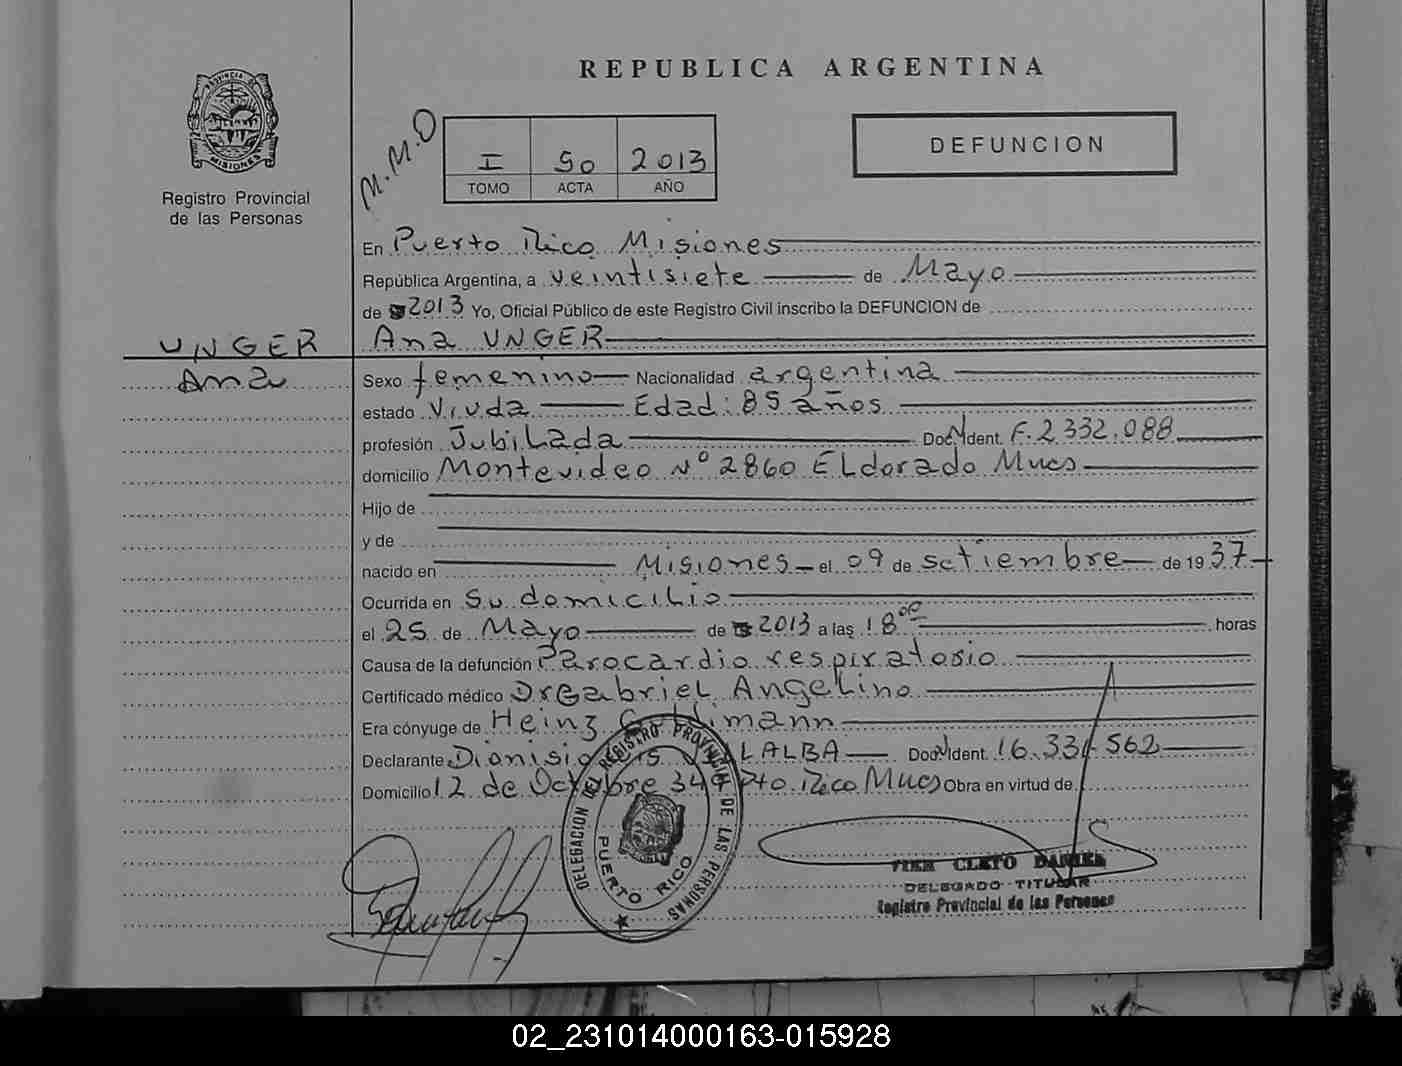 REPUBLICA ARGENTINA
PROVINCIA DE MISIONES
Registro Provincial
de las Personas
M.M.O
I 50 2013
TOMO ACTA AÑO
DEFUNCION
En Puerto Rico Misiones
República Argentina, a veintisiete de Mayo
de 2013 Yo, Oficial Público de este Registro Civil inscribo la DEFUNCION de
UNGER
Ana UNGER
Ana
Sexo femenino Nacionalidad argentina
estado Viuda Edad: 85 años
profesión Jubilada Doc. Ident. F. 2.332.088
domicilio Montevideo Nº 2860 Eldorado Mnes
Hijo de
y de
nacido en Misiones el 09 de setiembre de 1937
Ocurrida en su domicilio
el 25 de Mayo de 2013 a las 18 00 horas
Causa de la defunción Parocardio respiratorio
Certificado médico Dr Gabriel Angelino
Era cónyuge de Heinz
Declarante Doc. Ident. 16.334.562
Domicilio 12 de Octubre Pto. Rico Mnes Obra en virtud de
DELEGACION DEL REGISTRO PROVINCIAL DE LAS PERSONAS
PUERTO RICO
CLETO DANIEL
DELEGADO TITULAR
Registro Provincial de las Personas
02_231014000163-015928